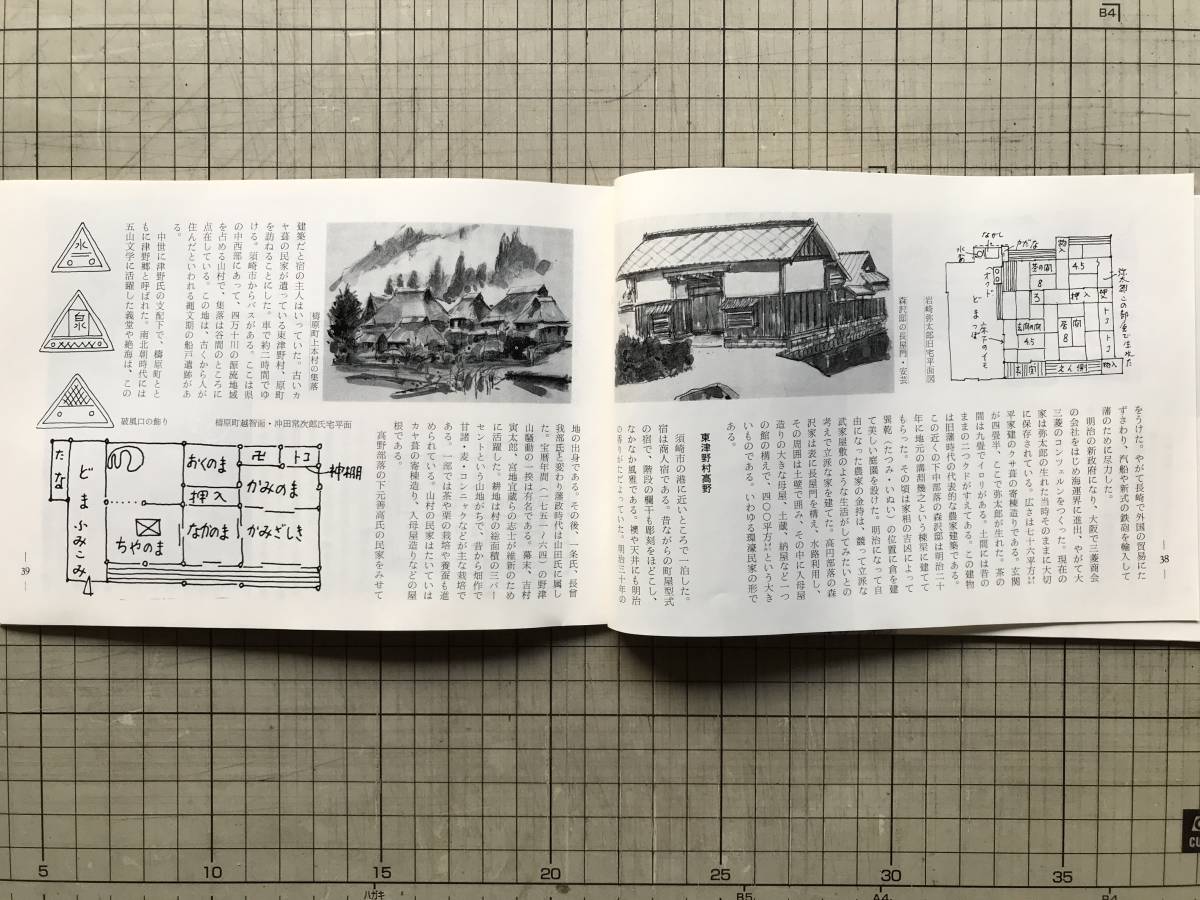 をうけた。やがて長崎で外国の貿易にた
ずさわり、汽船や新式の鉄砲を輸入して
藩のために尽力した。
明治の新政府になり、大阪で三菱商会
の会社をはじめ海運界に進出、やがて大
三菱のコンツェルンをつくった。現在の
家は弥太郎の生れた当時そのままに大切
に保存されている。広さは七十六平方㍍
平家建のクサ葺の寄棟造りである。玄関
が四畳半、ここで弥太郎が生れた。茶の
間は九畳でイロリがある。土間には昔の
ままの二つクドがすえてある。この建物
は旧藩時代の代表的な農家建築である。
この近くの下中部落の森沢邸は明治二十
年に地元の溝渕幾之という棟梁に建てて
もらった。その頃は家相の吉凶によって
巽乾(たつみ・いぬい)の位置に倉を建
て美しい庭園を設けた。明治になって自
由になった農家の金持は、競って立派な
武家屋敷のような生活がしてみたいとの
考えで立派な家を建てた。高円部落の森
沢家は表に長屋門を構え、水路利用し、
その周囲は土壁で囲み、その中に入母屋
造りの大きな母屋、土蔵、納屋など一つ
の館の構えで、四〇〇平方㍍という大き
いものである。いわゆる環濠民家の形で
ある。
東津野村高野
須崎市の港に近いところで一泊した。
宿は商人宿である。昔ながらの町屋型式
の宿で、階段の欄干も彫刻をほどこし、
なかなか風雅である。襖や天井にも明治
岩崎弥太郎旧宅平面図
森沢邸の長屋門・安芸
ながし
水ガメ
戸だな
物入
茶の間
8
4.5
3
押入
オクド
どま
玄関の間
4.5
居間
8
トコ
トコ
玄関
えん側
物入
38
建築だと宿の主人はいっていた。古いカ
ヤ葺の民家が遺っている東津野村、原町
を訪ねることにした。車で約二時間でゆ
ける。須崎市からバスがある。ここは県
の中西部にあって、四万十川の源流地域
を占める山村で、集落は谷間のところに
点在している。この地は、古くから人が
住んだといわれる縄文期の船戸遺跡があ
る。
中世に津野氏の支配下で、檮原町とと
もに津野郷と呼ばれた。南北朝時代には
五山文学に活躍した義堂や絶海は、この
地の出身である。その後、一条氏、長曾
我部氏と変わり藩政時代は山田氏に属し
た。宝暦年間(一七五一~六四)の野津
山騒動の一揆は有名である。幕末、吉村
寅太郎、宮地宜蔵らの志士が維新のため
に活躍した。耕地は村の総面積の三パー
セントという山地がちで、昔から畑作で
甘諸・麦・コンニャクなどが主な栽培で
ある。一部では茶や栗の栽培や養蚕も進
められている。山村の民家はたいていは
カヤ葺の寄棟造り、入母屋造りなどの屋
根である。
高野部落の下元善高氏の民家をみせて
檮原町上本村の集落
水
泉
破風口の飾り
檮原町越智面・沖田常次郎氏宅平面
たな
どま
ふみこみ
おくのま
押入
なかのま
ちやのま
卍
トコ
神棚
かみのま
かみざしき
39
B4
5
10
15
20
25
30
35
ハガキ
B5
A4
B4
CU